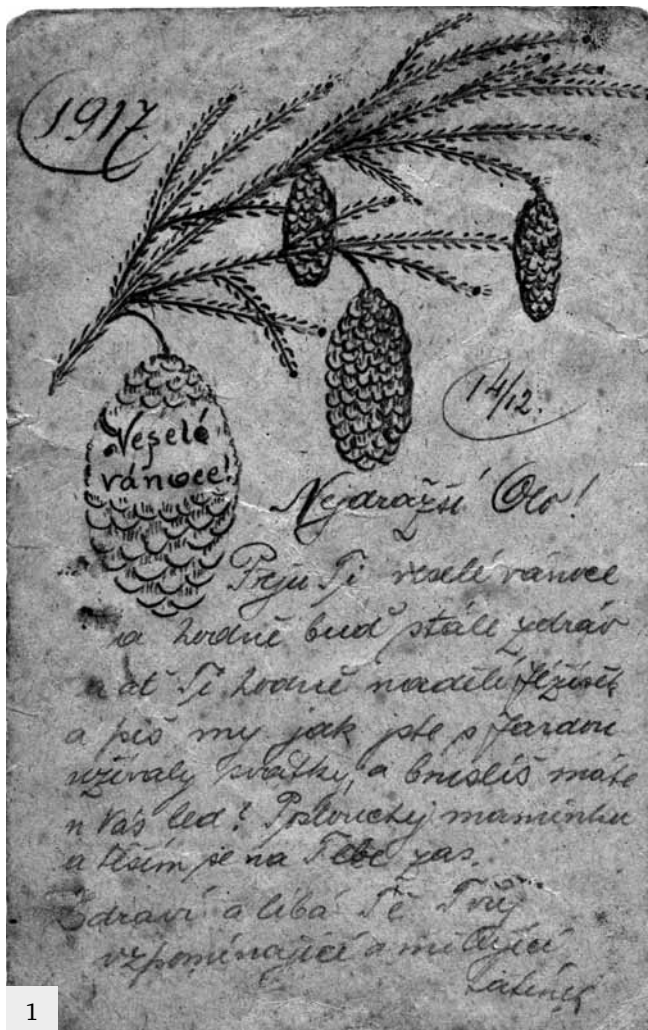 1917
14/12.
Veselé
vánoce!
Nejdražší Olo!
Přeju Ti veselé vánoce
a hodně buď stále zdráv
ať Ti hodně nadělí Ježíšek
a piš my jak jste s Jardou
užívaly svátky, a bruslíš máte
u Vás led? Poslouchej maminku
a těším se na Tebe zas.
Zdraví a líbá Tě Tvůj
vzpomínající a milující
tatínek
1